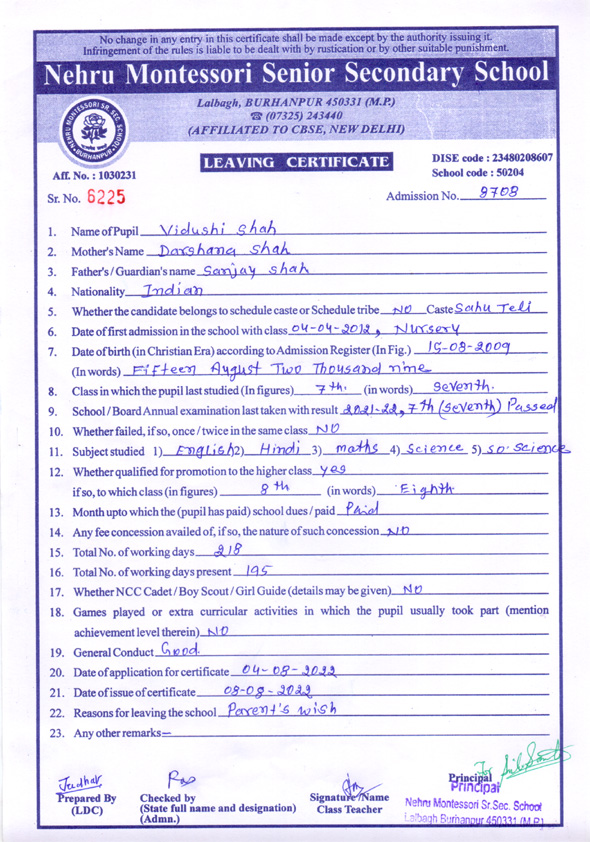 No change in any entry in this certificate shall be made except by the authority issuing it.
Infringement of the rules is liable to be dealt with by rustication or by other suitable punishment.
Nehru Montessori Senior Secondary School
NEHRU MONTESSORI SR. SEC. SCHOOL
BURHANPUR
Lalbagh, BURHANPUR 450331 (M.P.)
☎ (07325) 243440
(AFFILIATED TO CBSE, NEW DELHI)
LEAVING CERTIFICATE
DISE code : 23480208607
School code : 50204
Aff. No. : 1030231
Sr. No. 6225
Admission No. 8708
1. Name of Pupil Vidushi Shah
2. Mother's Name Darshana Shah
3. Father's / Guardian's name Sanjay Shah
4. Nationality Indian
5. Whether the candidate belongs to schedule caste or Schedule tribe NO Caste Sahu Teli
6. Date of first admission in the school with class 04-04-2012, Nursery
7. Date of birth (in Christian Era) according to Admission Register (In Fig.) 15-08-2009
(In words) Fifteen August Two Thousand nine
8. Class in which the pupil last studied (In figures) 7th. (in words) Seventh.
9. School / Board Annual examination last taken with result 2021-22, 7th (Seventh) Passed
10. Whether failed, if so, once / twice in the same class NO
11. Subject studied 1) English 2) Hindi 3) maths 4) Science 5) so. science
12. Whether qualified for promotion to the higher class yes
if so, to which class (in figures) 8th (in words) Eighth
13. Month upto which the (pupil has paid) school dues / paid Paid
14. Any fee concession availed of, if so, the nature of such concession NO
15. Total No. of working days 218
16. Total No. of working days present 195
17. Whether NCC Cadet / Boy Scout / Girl Guide (details may be given) NO
18. Games played or extra curricular activities in which the pupil usually took part (mention
achievement level therein) NO
19. General Conduct Good
20. Date of application for certificate 04-08-2022
21. Date of issue of certificate 08-08-2022
22. Reasons for leaving the school Parent's wish
23. Any other remarks –
Prepared By
(LDC)
Checked by
(State full name and designation)
(Admn.)
Signature / Name
Class Teacher
For
Principal
Principal
Nehru Montessori Sr. Sec. School
Lalbagh Burhanpur 450331 (M.P.)